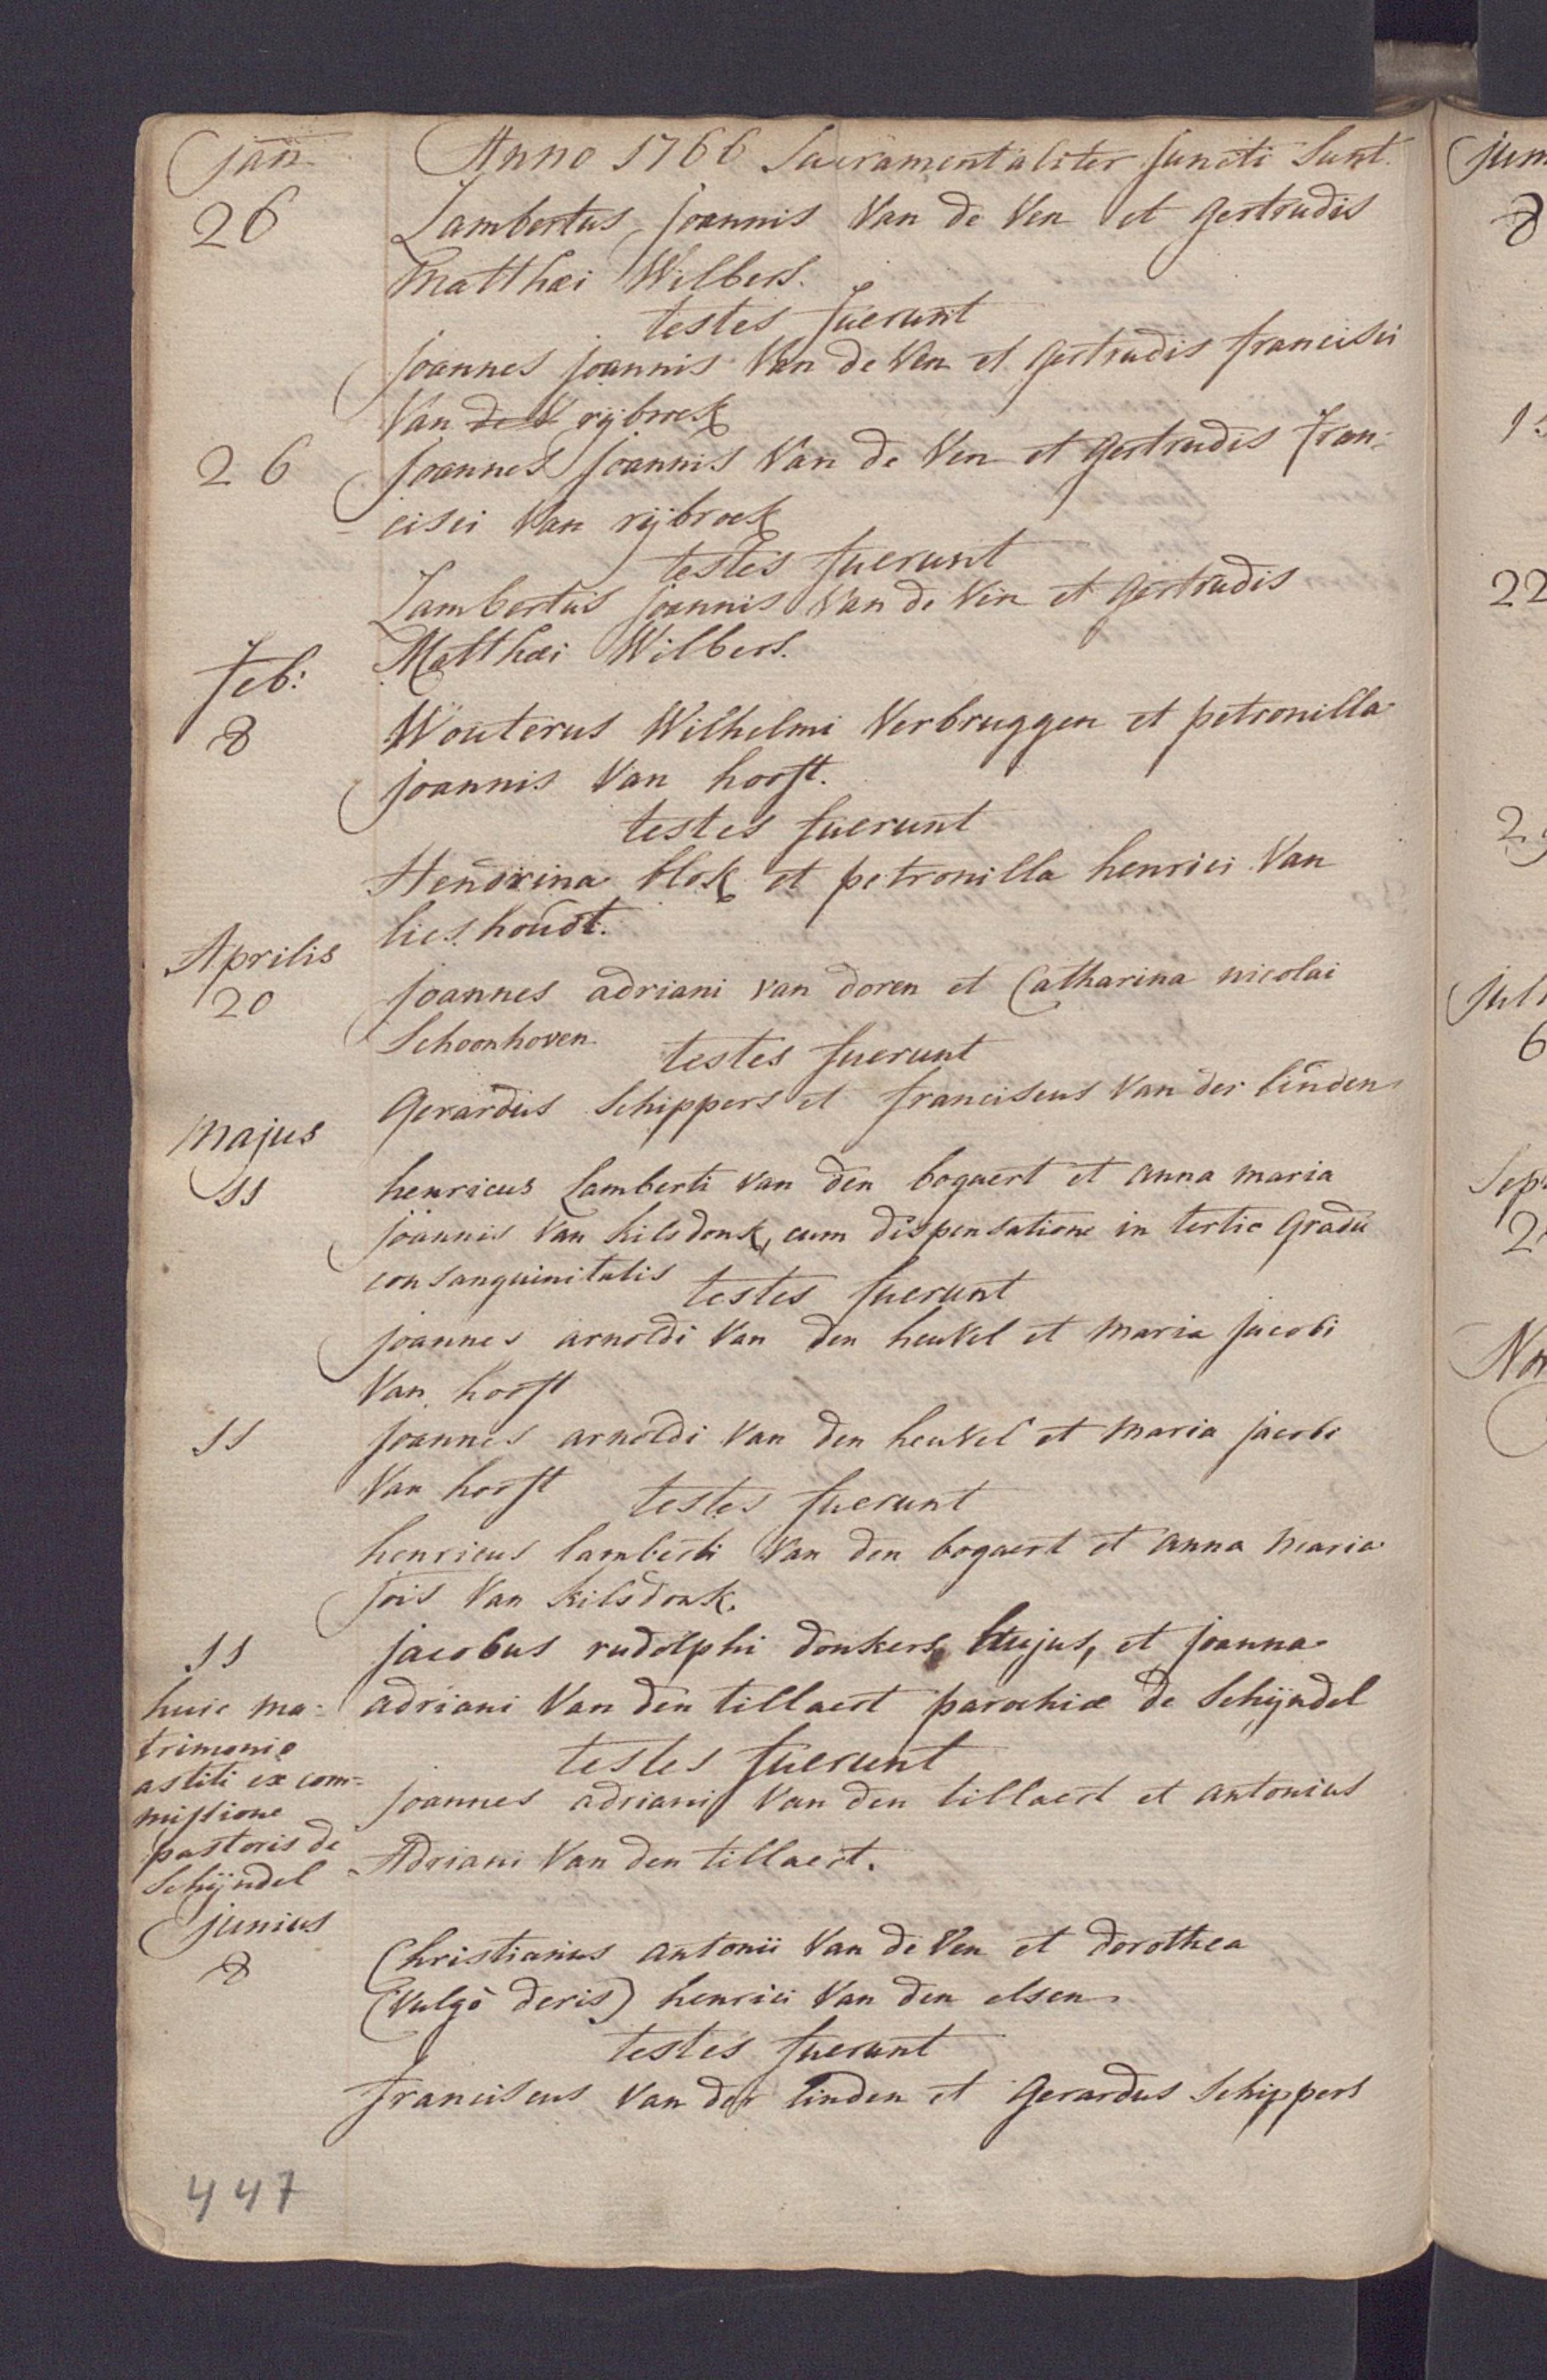 jan Anno 1766 Sacramentaliter juncti Sunt.
26 Lambertus joannis Van de Ven et gertrudis
Matthæi Wilbers.
testes fuerunt
joannes joannis Van de Ven et gertrudis francisci
Van de V rijbroek
26 joannes joannis Van de Ven et gertrudis fran-
cisci Van rijbroek
testes fuerunt
Lambertus joannis Van de Ven et gertrudis
Matthæi Wilbers.
feb:
8 Wouterus Wilhelmi Verbruggen et petronilla
joannis Van horst.
testes fuerunt
Hendrina blok et petronilla henrici Van
lieshoudt.
Aprilis
20 joannes adriani van doren et Catharina nicolai
Schoonhoven
testes fuerunt
Gerardus Schippers et franciscus Van der linden
Majus
11 henricus Lamberti van den bogaert et anna maria
joannis Van kilsdonk, cum dispensatione in tertio gradu
consanguinitatis testes fuerunt
joannes arnoldi Van den heuvel et Maria jacobi
Van horst
11 joannes arnoldi Van den heuvel et Maria jacobi
Van horst testes fuerunt
henricus lamberti Van den bogaert et anna Maria
jois Van kilsdonk.
11 jacobus rudolphi donkers, hujus, et joanna
huic ma- adriani Van den tillaert parochiæ de Schijndel
trimonio
testes fuerunt
astiti ex com-
missione joannes adriani Van den tillaert et antonius
pastoris de
Schijndel Adriani Van den tillaert.
junius
8 Christianus antonii Van de Ven et dorothea
(vulgò deris) henrici Van den elsen
testes fuerunt
franciscus Van der linden et Gerardus Schippers
447
jun
8
22
jul
6
Sep
2
Nov